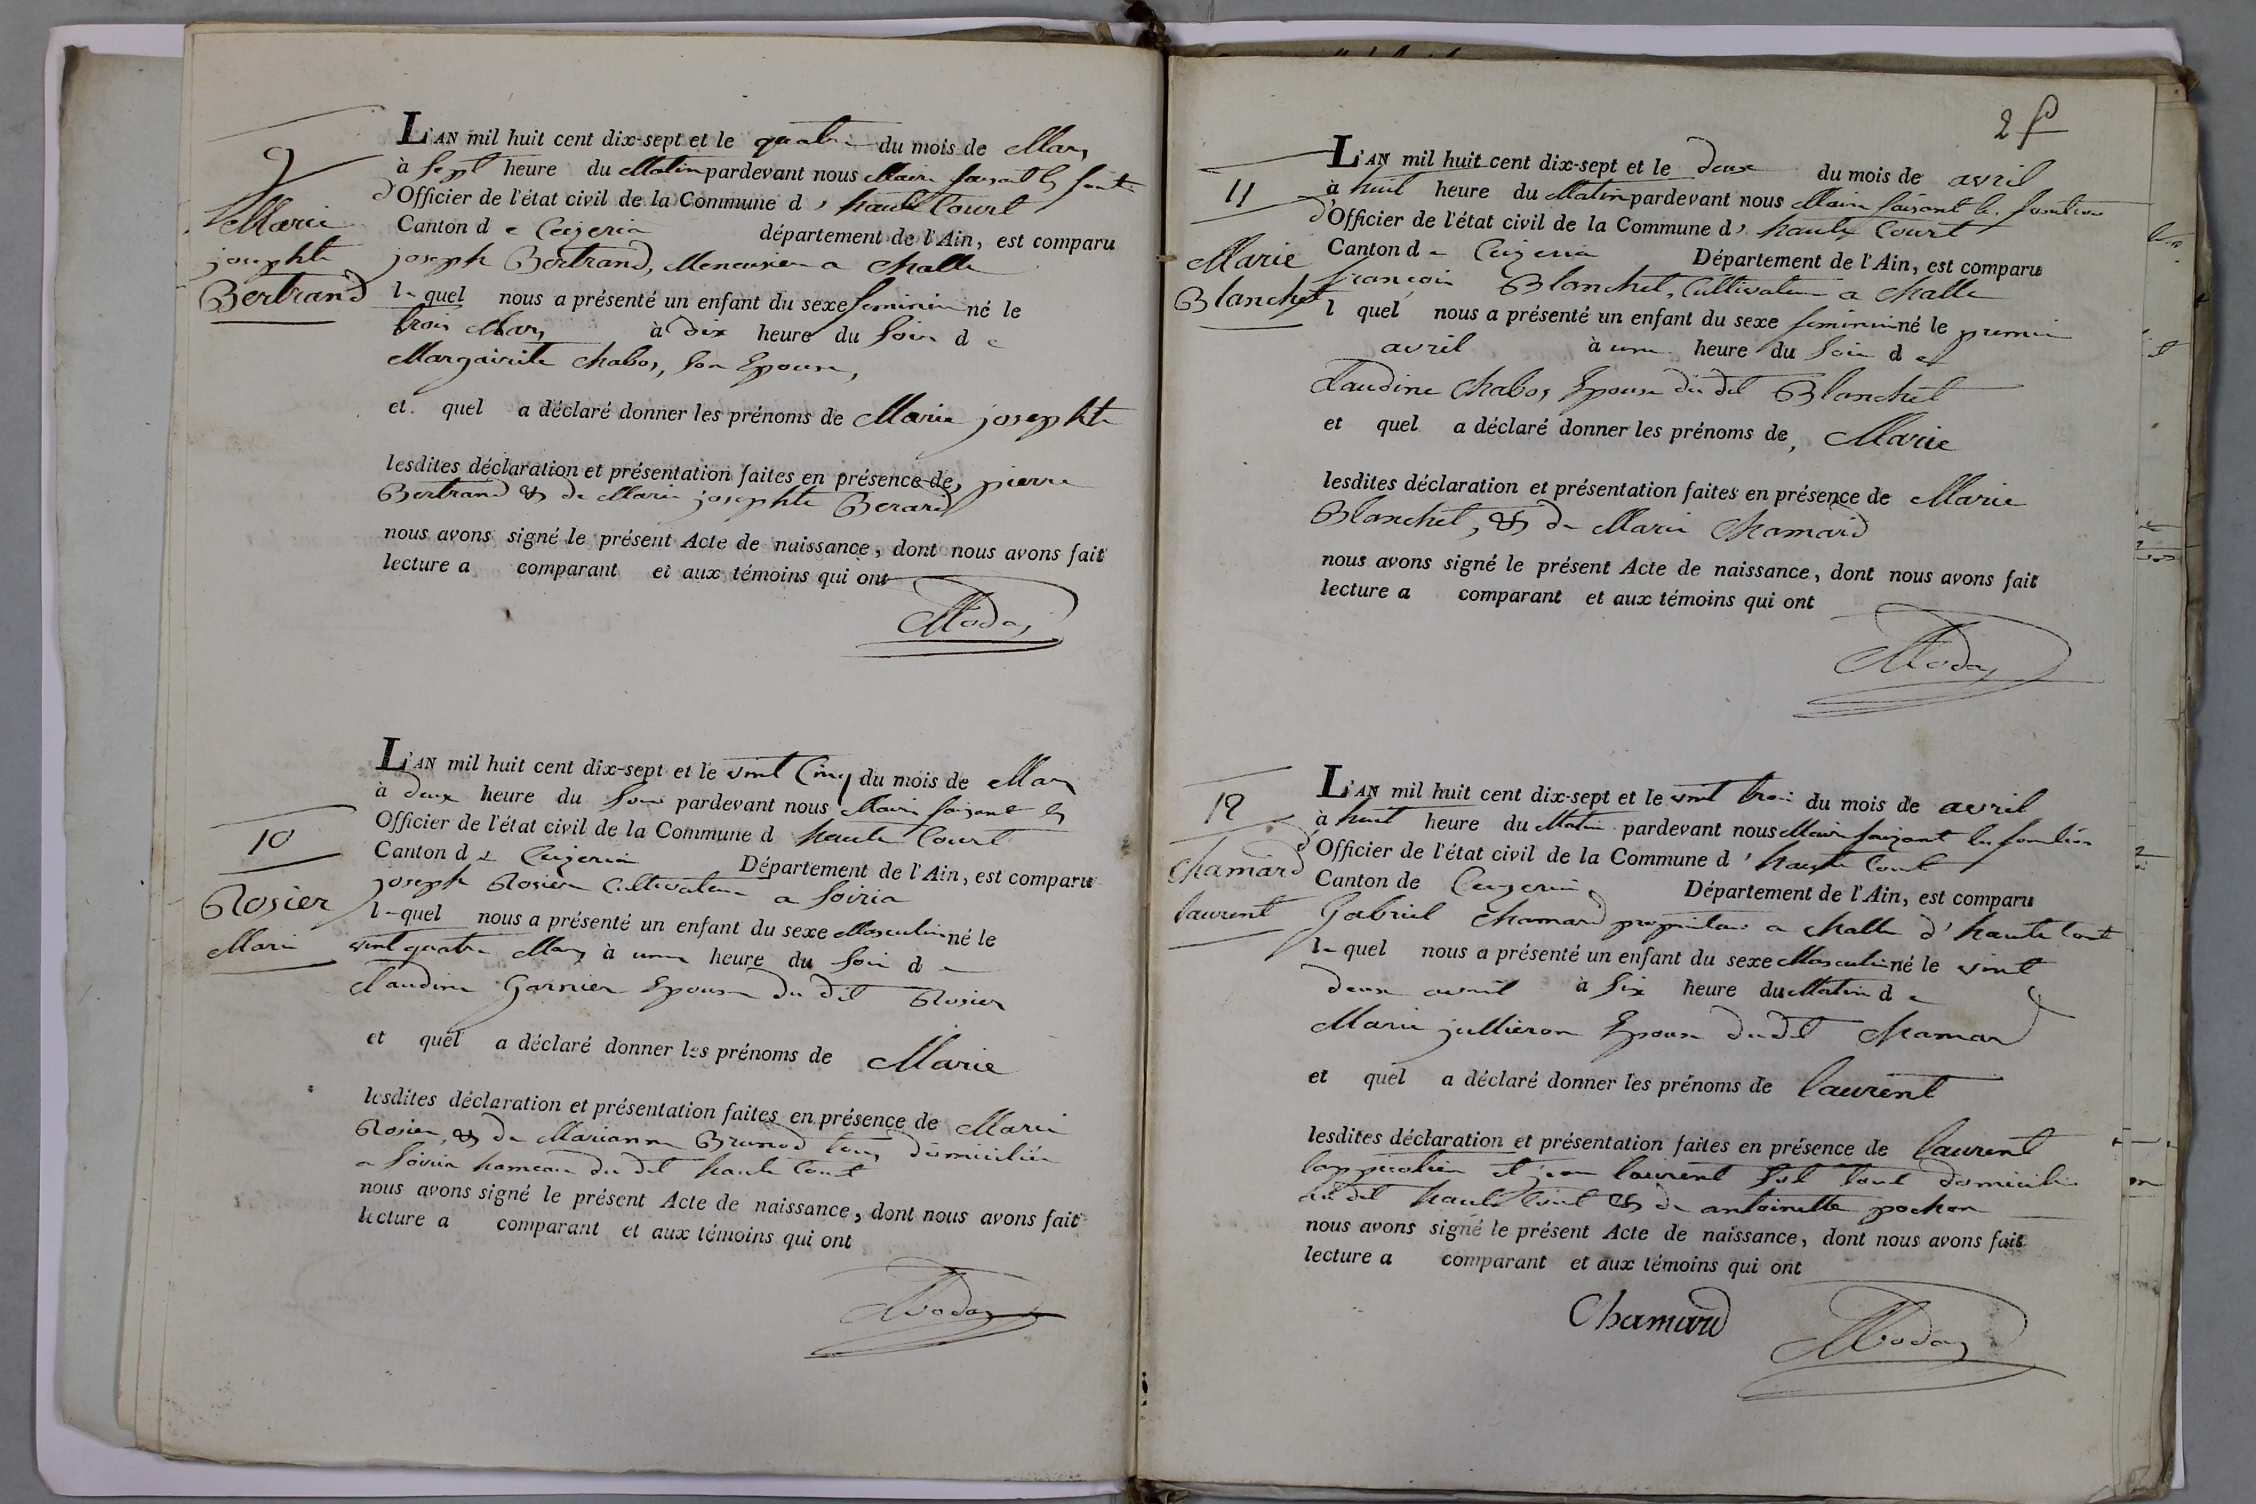 9
Marie
josephte
Bertrand
L'AN mil huit cent dix-sept et le quatre du mois de Mars
à Sept heure du Matin pardevant nous Maire faisant les
d'Officier de l'état civil de la Commune d' haute Court
Canton de Ceyzeria département de l'Ain, est comparu
joseph Bertrand, Menuisier a Challe
le quel nous a présenté un enfant du sexe feminin né le
trois Mars à dix heure du Soir de
Margairite Chabos, Son Epouse,
et quel a déclaré donner les prénoms de Marie josephte
lesdites déclaration et présentation faites en présence de pierre
Bertrand & de Marie josephte Berard
nous avons signé le présent Acte de naissance, dont nous avons fait
lecture a comparant et aux témoins qui ont
10
Rosier
Marie
L'AN mil huit cent dix-sept et le vint Cinq du mois de Mars
à deux heure du Soir pardevant nous Maire faisant les
Officier de l'état civil de la Commune d haute Court
Canton de Ceyzeria Département de l'Ain, est comparu
joseph Rosier Cultivateur a Soiria
le quel nous a présenté un enfant du sexe Masculin né le
vint quatre Mars à une heure du Soir de
Claudine Garnier Epouse du dit Rosier
et quel a déclaré donner les prénoms de Marie
lesdites déclaration et présentation faites en présence de Marie
Rosier, & de Marianne Brunod tous domiciliés
a Soiria hameau du dit haute Court
nous avons signé le présent Acte de naissance, dont nous avons fait
lecture a comparant et aux témoins qui ont
2
11
Marie
Blanchet
L'AN mil huit cent dix-sept et le deux du mois de avril
à huit heure du Matin pardevant nous Maire faisant les fonction
d'Officier de l'état civil de la Commune d' haute Court
Canton de Ceyzeria Département de l'Ain, est comparu
françois Blanchet, Cultivateur a Challe
l quel nous a présenté un enfant du sexe feminin né le premier
avril à une heure du Soir de
Claudine Chabos Epouse du dit Blanchet
et quel a déclaré donner les prénoms de, Marie
lesdites déclaration et présentation faites en présence de Marie
Blanchet, & de Marie Chamard
nous avons signé le présent Acte de naissance, dont nous avons fait
lecture a comparant et aux témoins qui ont
12
Chamard
laurent
L'AN mil huit cent dix-sept et le vint trois du mois de avril
à huit heure du Matin pardevant nous Maire faisant les fonction
d'Officier de l'état civil de la Commune d' haute Court
Canton de Ceyzeria Département de l'Ain, est comparu
Gabriel Chamard proprietaire a Challe d'haute Court
le quel nous a présenté un enfant du sexe Masculin né le vint
deux avril à Six heure du Matin de
Marie jullieron Epouse dudit Chamard
et quel a déclaré donner les prénoms de laurent
lesdites déclaration et présentation faites en présence de laurent
et jean laurent tout domicilie
au dit haute Court & de antoinette pochon
nous avons signé le présent Acte de naissance, dont nous avons fait
lecture a comparant et aux témoins qui ont
Chamard